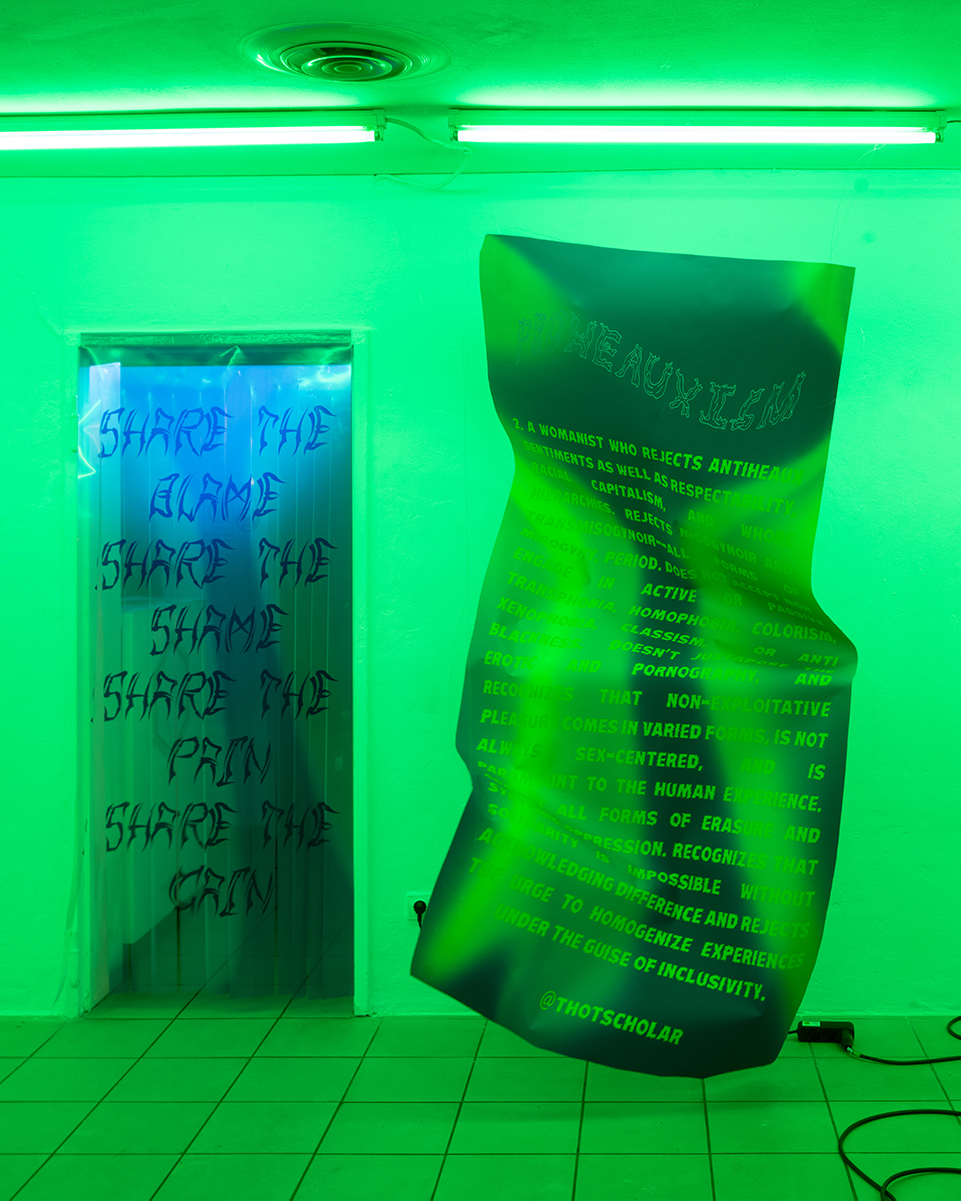 SHARE THE
BLAME
SHARE THE
SHAME
SHARE THE
PAIN
SHARE THE
GAIN
HEAUXISM
2. A WOMANIST WHO REJECTS ANTIHEAU
SENTIMENTS AS WELL AS RESPECTABILITY
RACIAL CAPITALISM, AND WHORE
HIERARCHIES, REJECTS MISOGYNOIR AND
TRANSMISOGYNOIR—ALL FORMS OF
MISOGYNY, PERIOD. DOES NOT ACCEPT NOR
ENGAGE IN ACTIVE OR PASSIVE
TRANSPHOBIA, HOMOPHOBIA, COLORISM,
XENOPHOBIA, CLASSISM, OR ANTI
BLACKNESS. DOESN'T JUXTAPOSE
EROTIC AND PORNOGRAPHY, AND
RECOGNIZES THAT NON-EXPLOITATIVE
PLEASURE COMES IN VARIED FORMS, IS NOT
ALWAYS SEX-CENTERED, AND IS
PARAMOUNT TO THE HUMAN EXPERIENCE.
ALL FORMS OF ERASURE AND
OPPRESSION. RECOGNIZES THAT
SOLIDARITY IS IMPOSSIBLE WITHOUT
ACKNOWLEDGING DIFFERENCE AND REJECTS
THE URGE TO HOMOGENIZE EXPERIENCES
UNDER THE GUISE OF INCLUSIVITY.
@THOTSCHOLAR